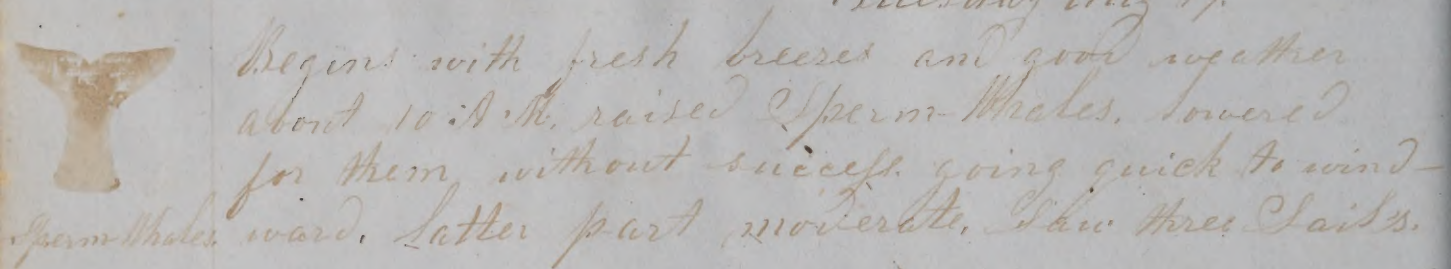 Tuesday Aug 17.
Begins with fresh breezes and good weather
about 10 A.M. raised Sperm-Whales. lowered
for them without success going quick to wind-
Sperm Whales. ward. Latter part moderate. Saw three Sails.